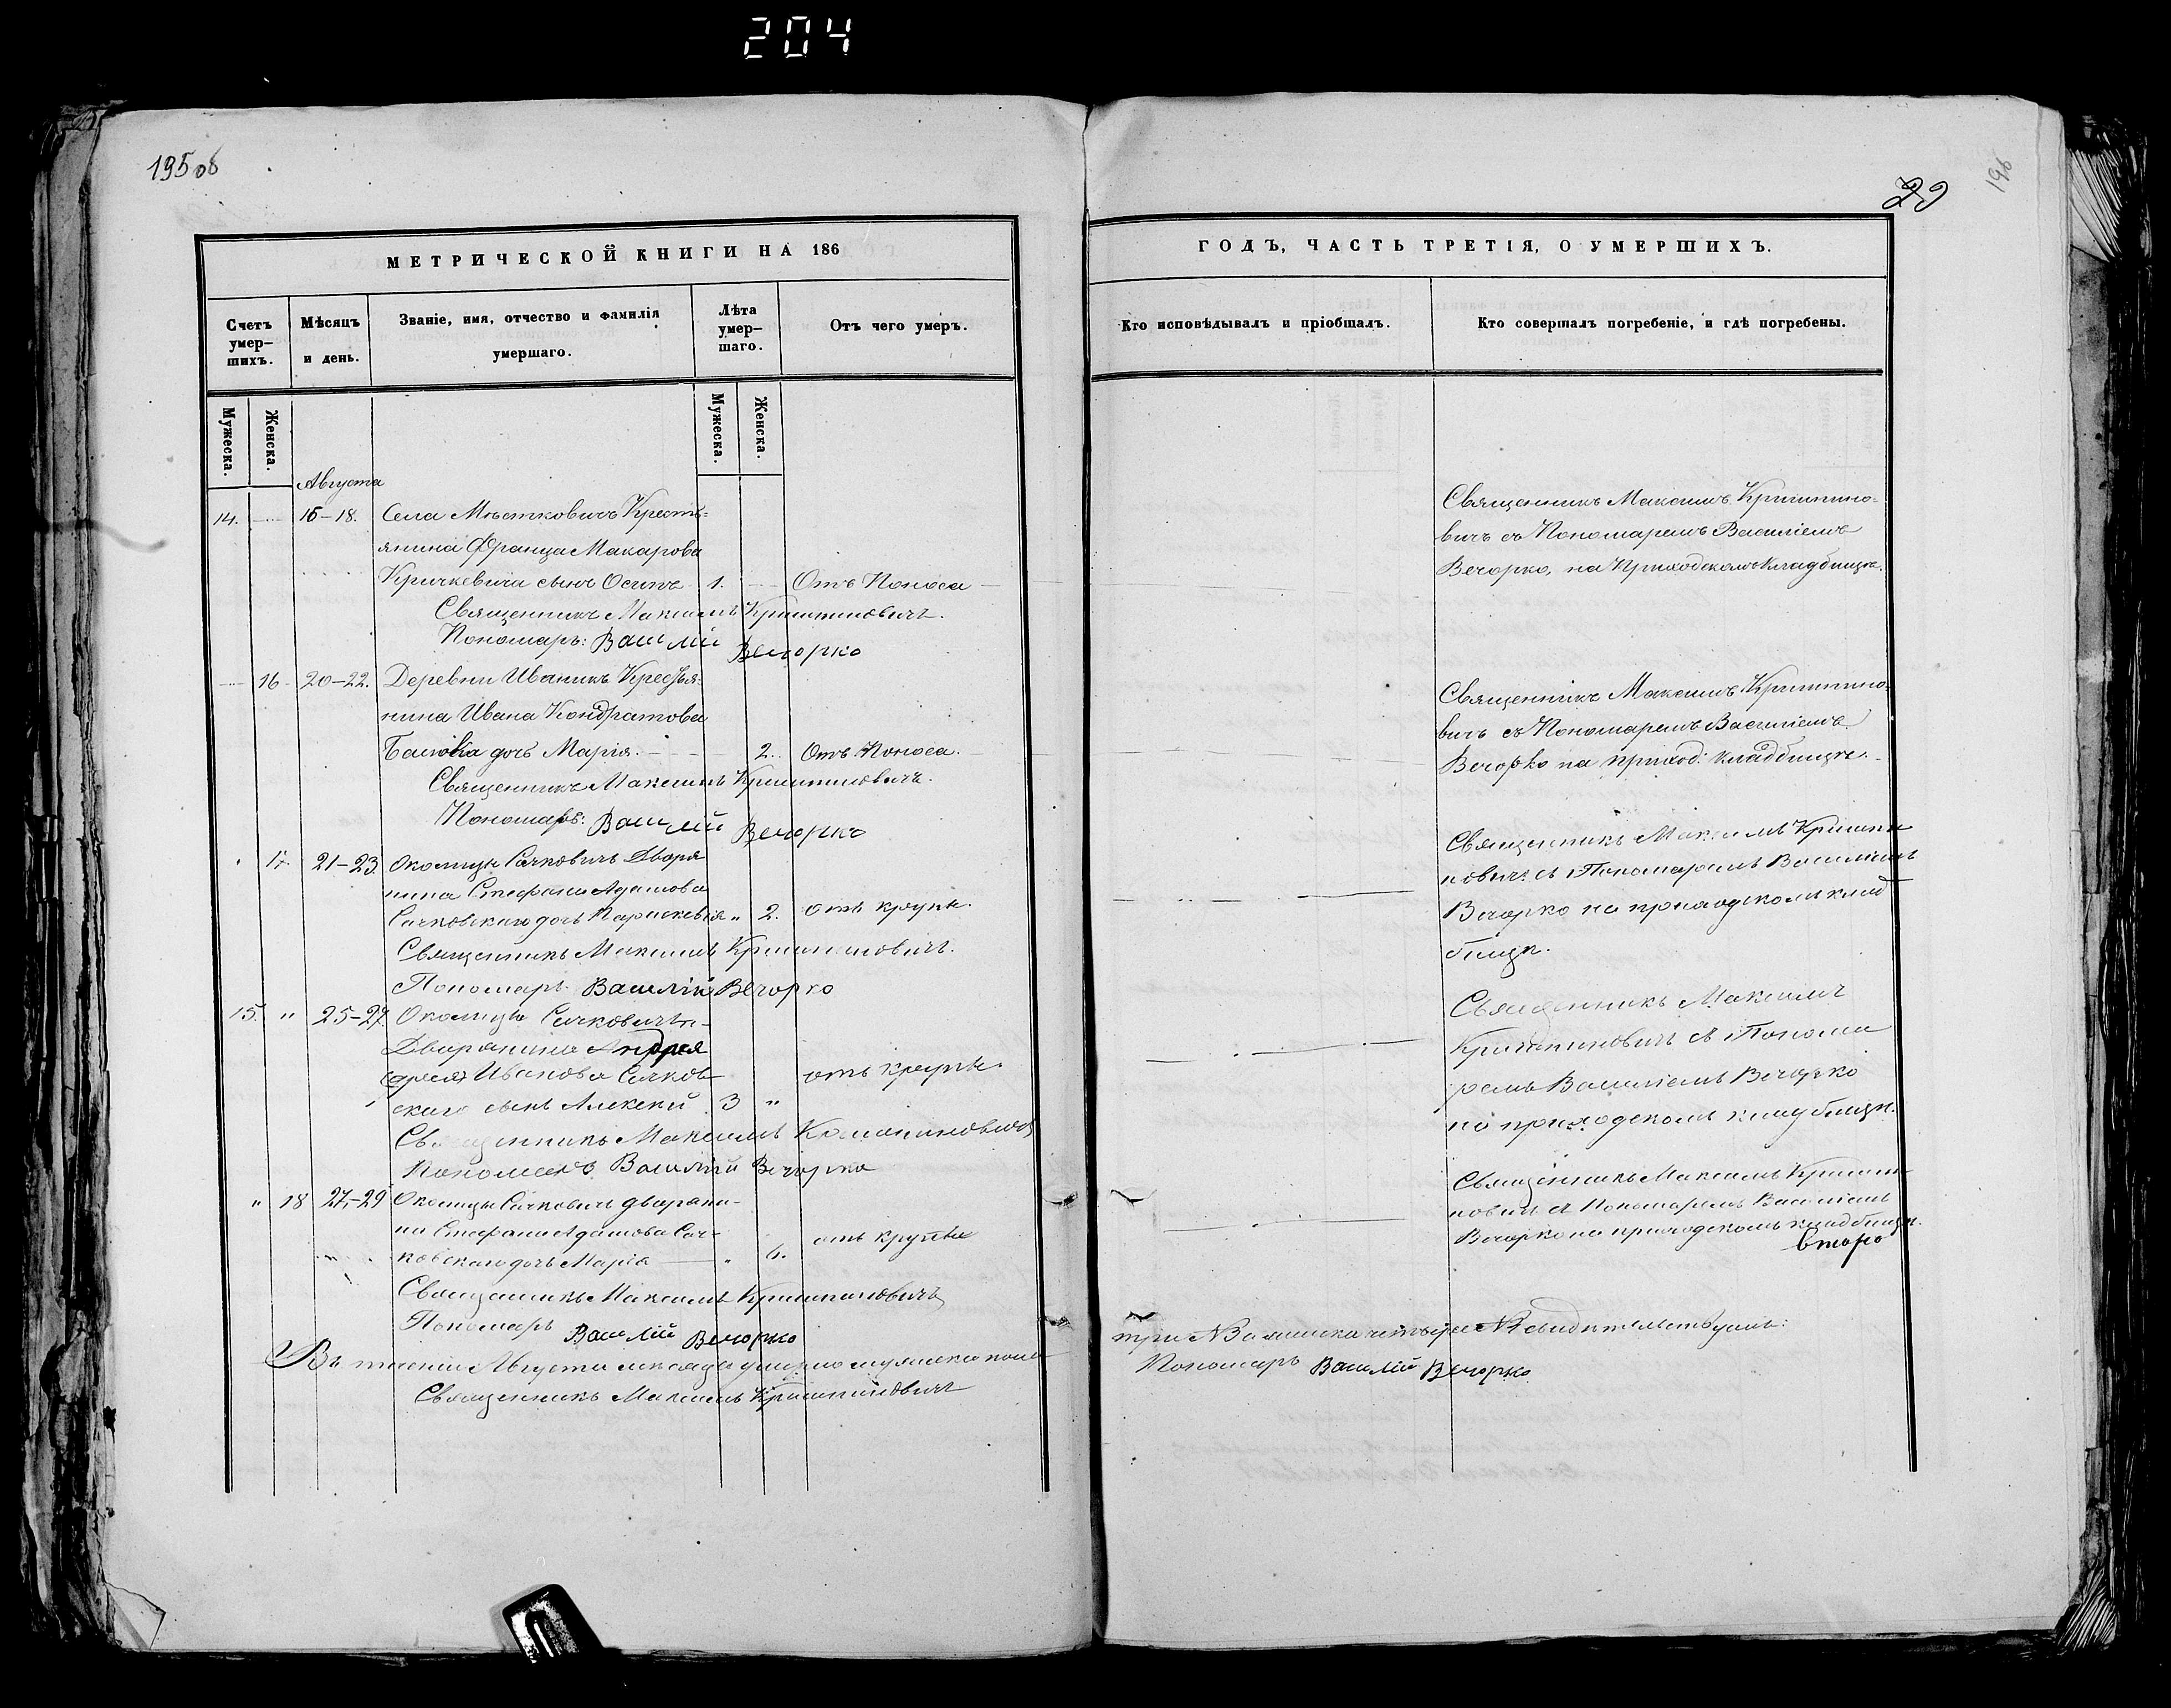 204
195 об
196
29
МЕТРИЧЕСКОЙ КНИГИ НА 186
Счетъ умер-
шихъ.
Мѣсяцъ
и день.
Званіе, имя, отчество и фамилія
умершаго.
Лѣта
умер-
шаго.
Отъ чего умеръ.
Мужеска.
Женска.
Мужеска.
Женска.
Августа
14. 16-18. Села Мѣстковичъ Кресть-
янина Франца Макарова
Кричкевича сынъ Осипъ 1. Отъ Поноса
Священникъ Максимъ
Пономарь: Василій Вечорко
16 20-22. Деревни Иваникъ Крестья-
нина Ивана Кондратова
дочь Марія. 2. Отъ Поноса.
Священникъ Максимъ
Пономарь: Василій Вечорко
17. 21-23. Околицы Сачковичъ Дворя
нина Стефана Адамова
Сачковскаго дочь Параскевія " 2. отъ крупы.
Священникъ Максимъ
Пономарь Василій Вечорко
15. " 25-27. Околицы Сачковичъ
Дворянина Андрея
Иванова Сачков
скаго сынъ Алексѣй 3 " отъ крупы.
Священникъ Максимъ
Пономарь Василій Вечорко
" 18 27-29 Околицы Сачковичъ дворяни-
на Стефана Адамова Сач-
ковскаго дочь Марія " отъ крупы
Священникъ Максимъ
Пономарь Василій Вечорко
Въ теченіи Августа мѣсяца умерло мужеска пола
Священникъ Максимъ
ГОДЪ, ЧАСТЬ ТРЕТІЯ, О УМЕРШИХЪ.
Кто исповѣдывалъ и пріобщалъ.
Кто совершалъ погребеніе, и гдѣ погребены.
Священникъ Максимъ
вичъ съ Пономаремъ Василіемъ
Вечорко, на Приходскомъ Кладбищѣ.
Священникъ Максимъ
вичъ съ Пономаремъ Василіемъ
Вечорко на приход: кладбищѣ.
Священникъ Максимъ
новичъ съ Пономаремъ Василіемъ
Вечорко на приходскомъ клад
бищѣ.
Священникъ Максимъ
съ Понома
ремъ Василіемъ Вечорко
на приходскомъ кладбищѣ.
Священникъ Максимъ
новичъ съ Пономаремъ Василіемъ
Вечорко на приходскомъ кладбищѣ.
три 3 а женска четыре 4 свидѣтельствуемъ:
Пономарь Василій Вечорко